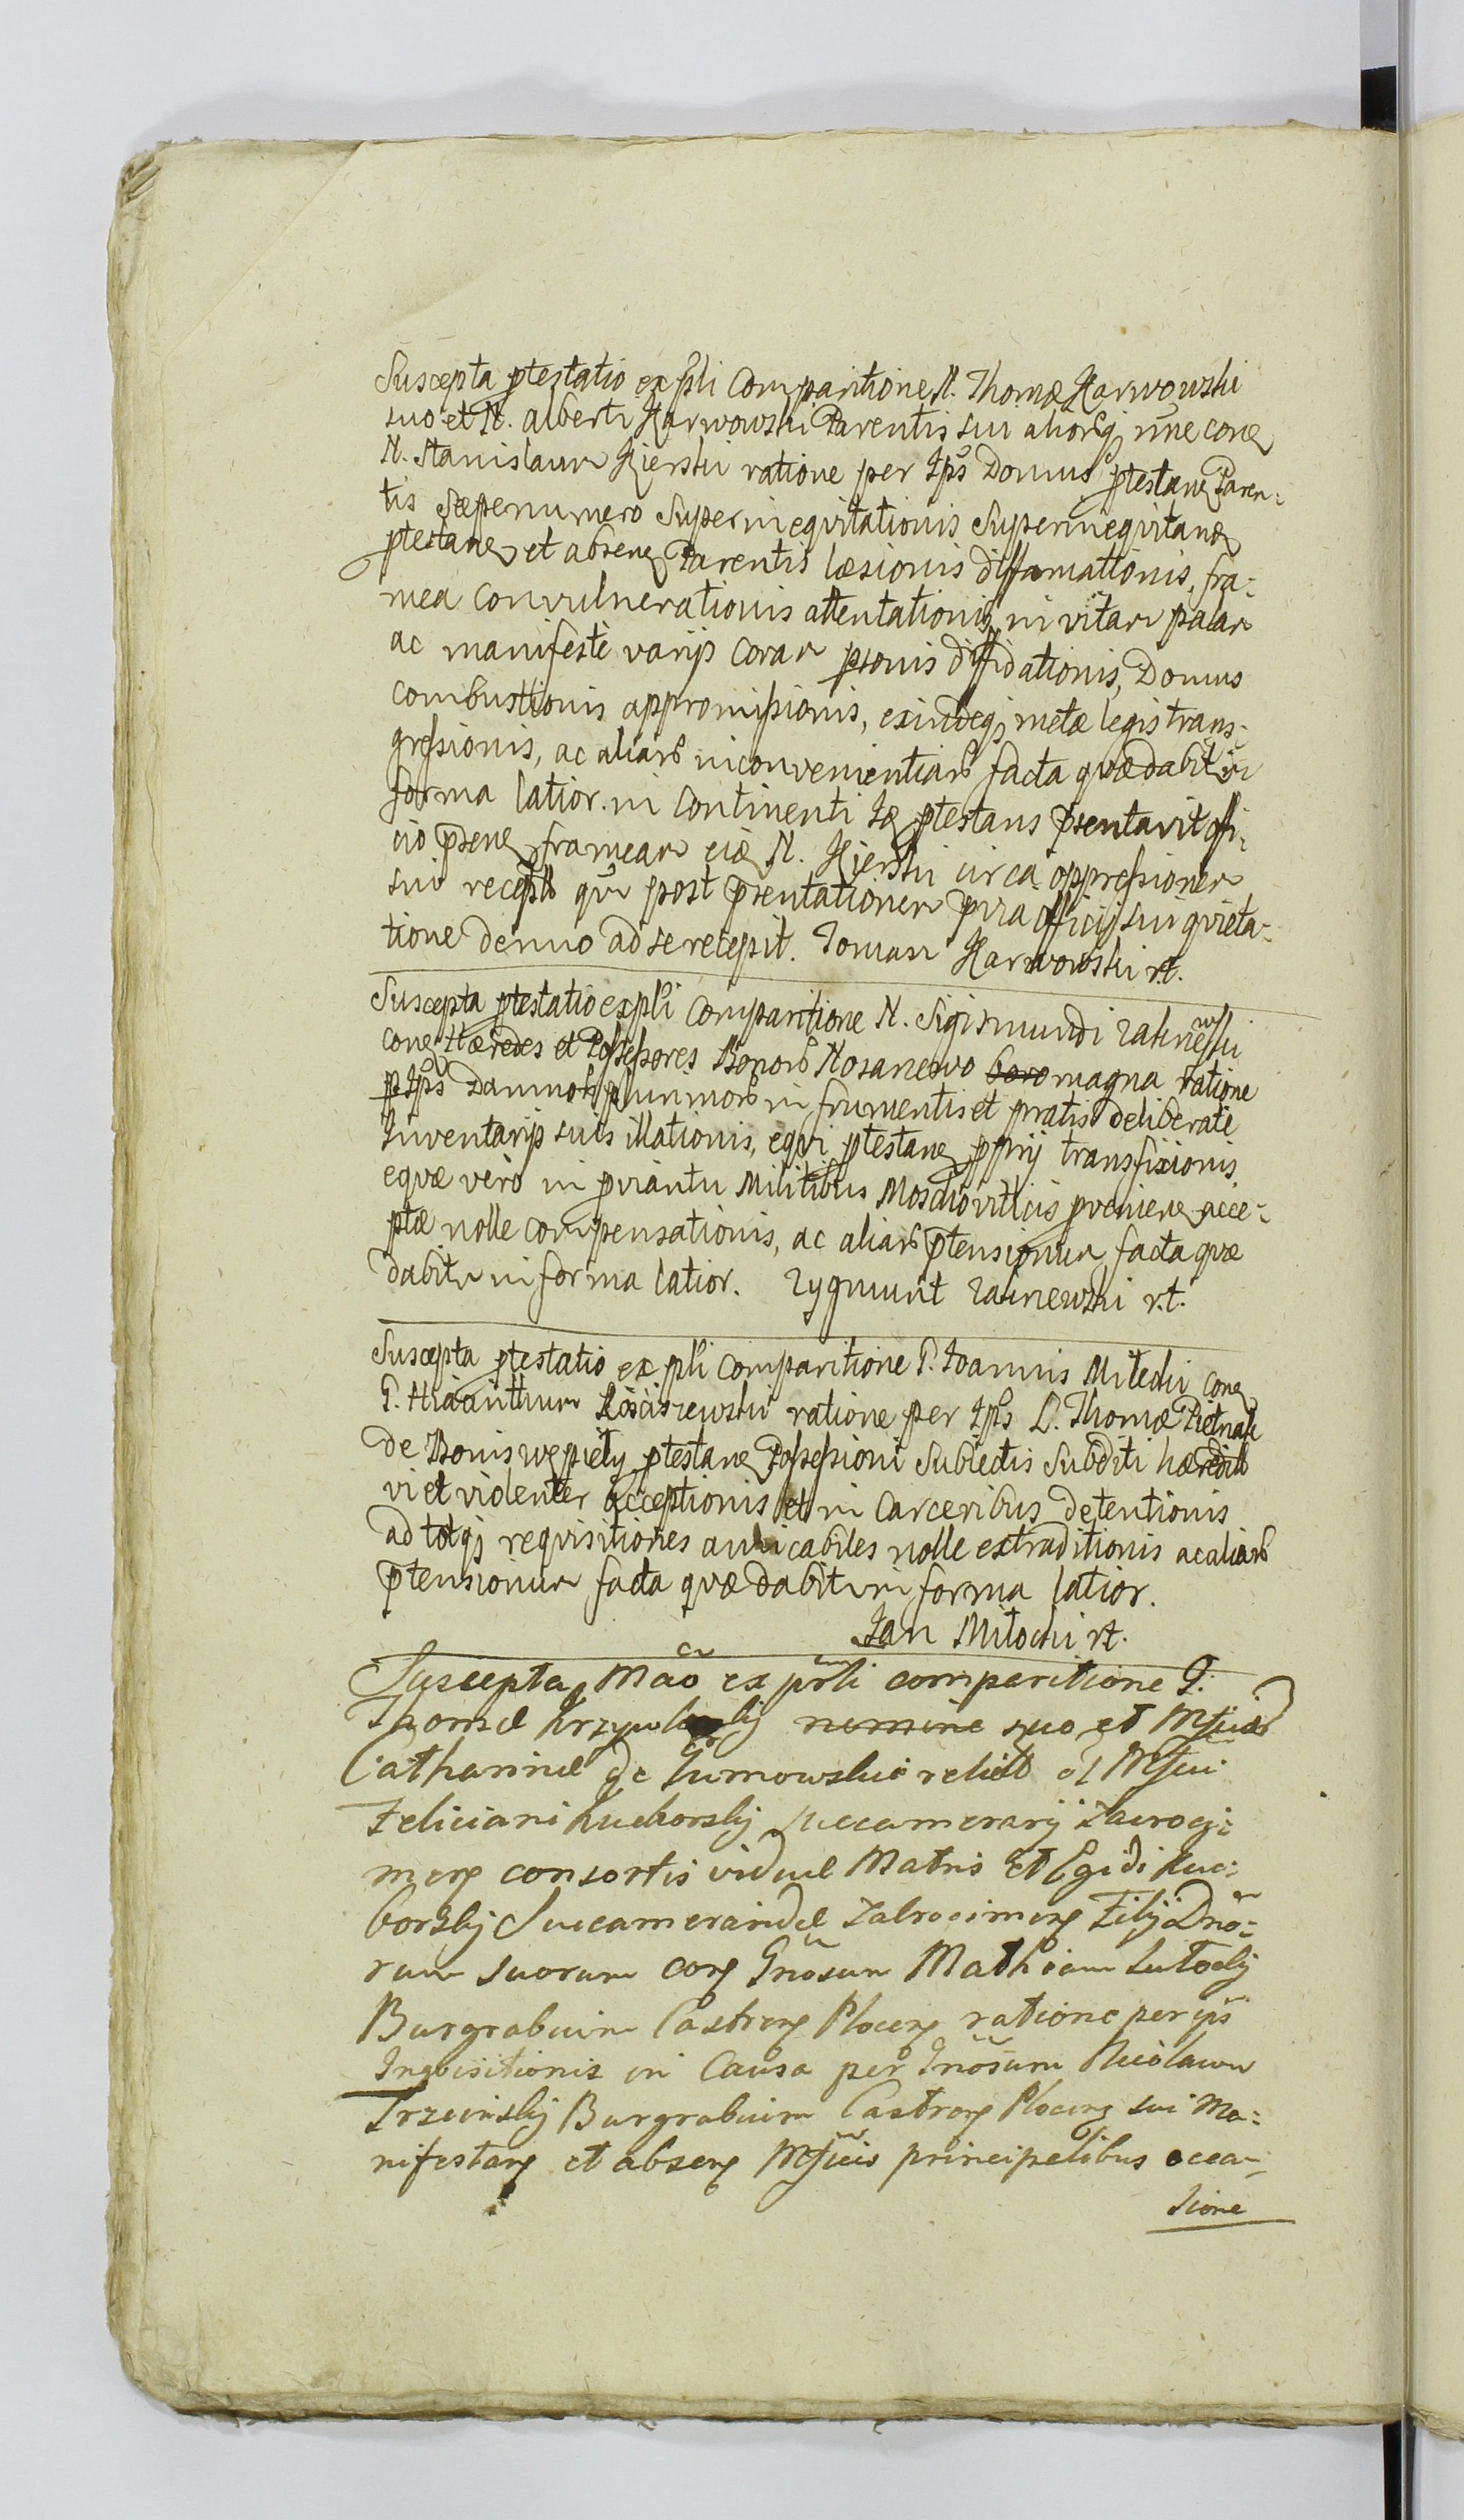 Suscepta ptestatio ex pñli Comparitione N. Thomæ Karwowski
suo et N. Alberti Karwowski Parentis sui aliorqȝ nñe cone
N. Stanislaum Kierski ratione per Ips Domus ptestane Paren-
tis sæpenumero Superinequitationis Superinequitane
ptestane et absene Parentis læsionis diffamationis, fra-
mea convulnerationis attentationis in vitam palam
ac manifestè varijs coram psonis diffidationis, Domus
combustionis appromissionis, exindeqȝ metæ legis trans-
gressionis, ac aliarū inconvenientiarū facta quæ dabitur in
forma latior. in continenti Id ptestans psentavit offi-
cio psene frameam eid N. Kierski circa oppressionem
sui recept quā post psentationem pvia officij sui quieta-
tione denuo ad se recepit. Tomasz Karwowski rt.
Suscepta ptestatio ex pñli Comparitione N. Sigismundi Zalinewski
cone Hæredes et Possessores Bonorū Kosanewo magna ratione
p Ips Damnorū plurimorū in frumentis et pratis deliberatè
Inventarijs suis illationis, equi ptestane pprij transfixionis
equæ verò in pviantu Militibus Moschoviticis pveniene acce-
ptæ nolle compensationis, ac aliarū ptensionum facta quæ
dabitur in forma latior. Zygmunt Zalinewski r.t.
Suscepta ptestatio ex pñli Comparitione P. Joannis Miłocki cone
P. Hiacinthum Kosciszewski ratione per Ips L. Thomæ Pietrzak
de Bonis Wępiły ptestane Possessioni Subiectis Subditi hæredit
vi et violenter acceptionis et in Carceribus detentionis
ad totqȝ requisitiones amicabiles nolle extraditionis ac aliarū
ptensionum facta quæ dabitur in forma latior.
Jan Miłocki rt.
Suscepta Mão ex pñli comparitione P.
Thomæ nomine suo et Mfcæ
Catharinæ de relict ol Mfci
Feliciani Kuchorskij Succamerarij Zacrocz-
mens consortis viduæ Matris et Egidi Kuc-
borskij Succameraridæ Zakrocimens Filij Dño-
rum suorum cone Gnosum Mathiam Lutockij
Burgrabium Castrens Plocens ratione per ips
Inquisitionis in Causa per Gnosum Nicolaum
Trzcinskij Burgrabium Castrens Plocens sui Ma-
nifestans et absens Mfcis principalibus occa-
sione